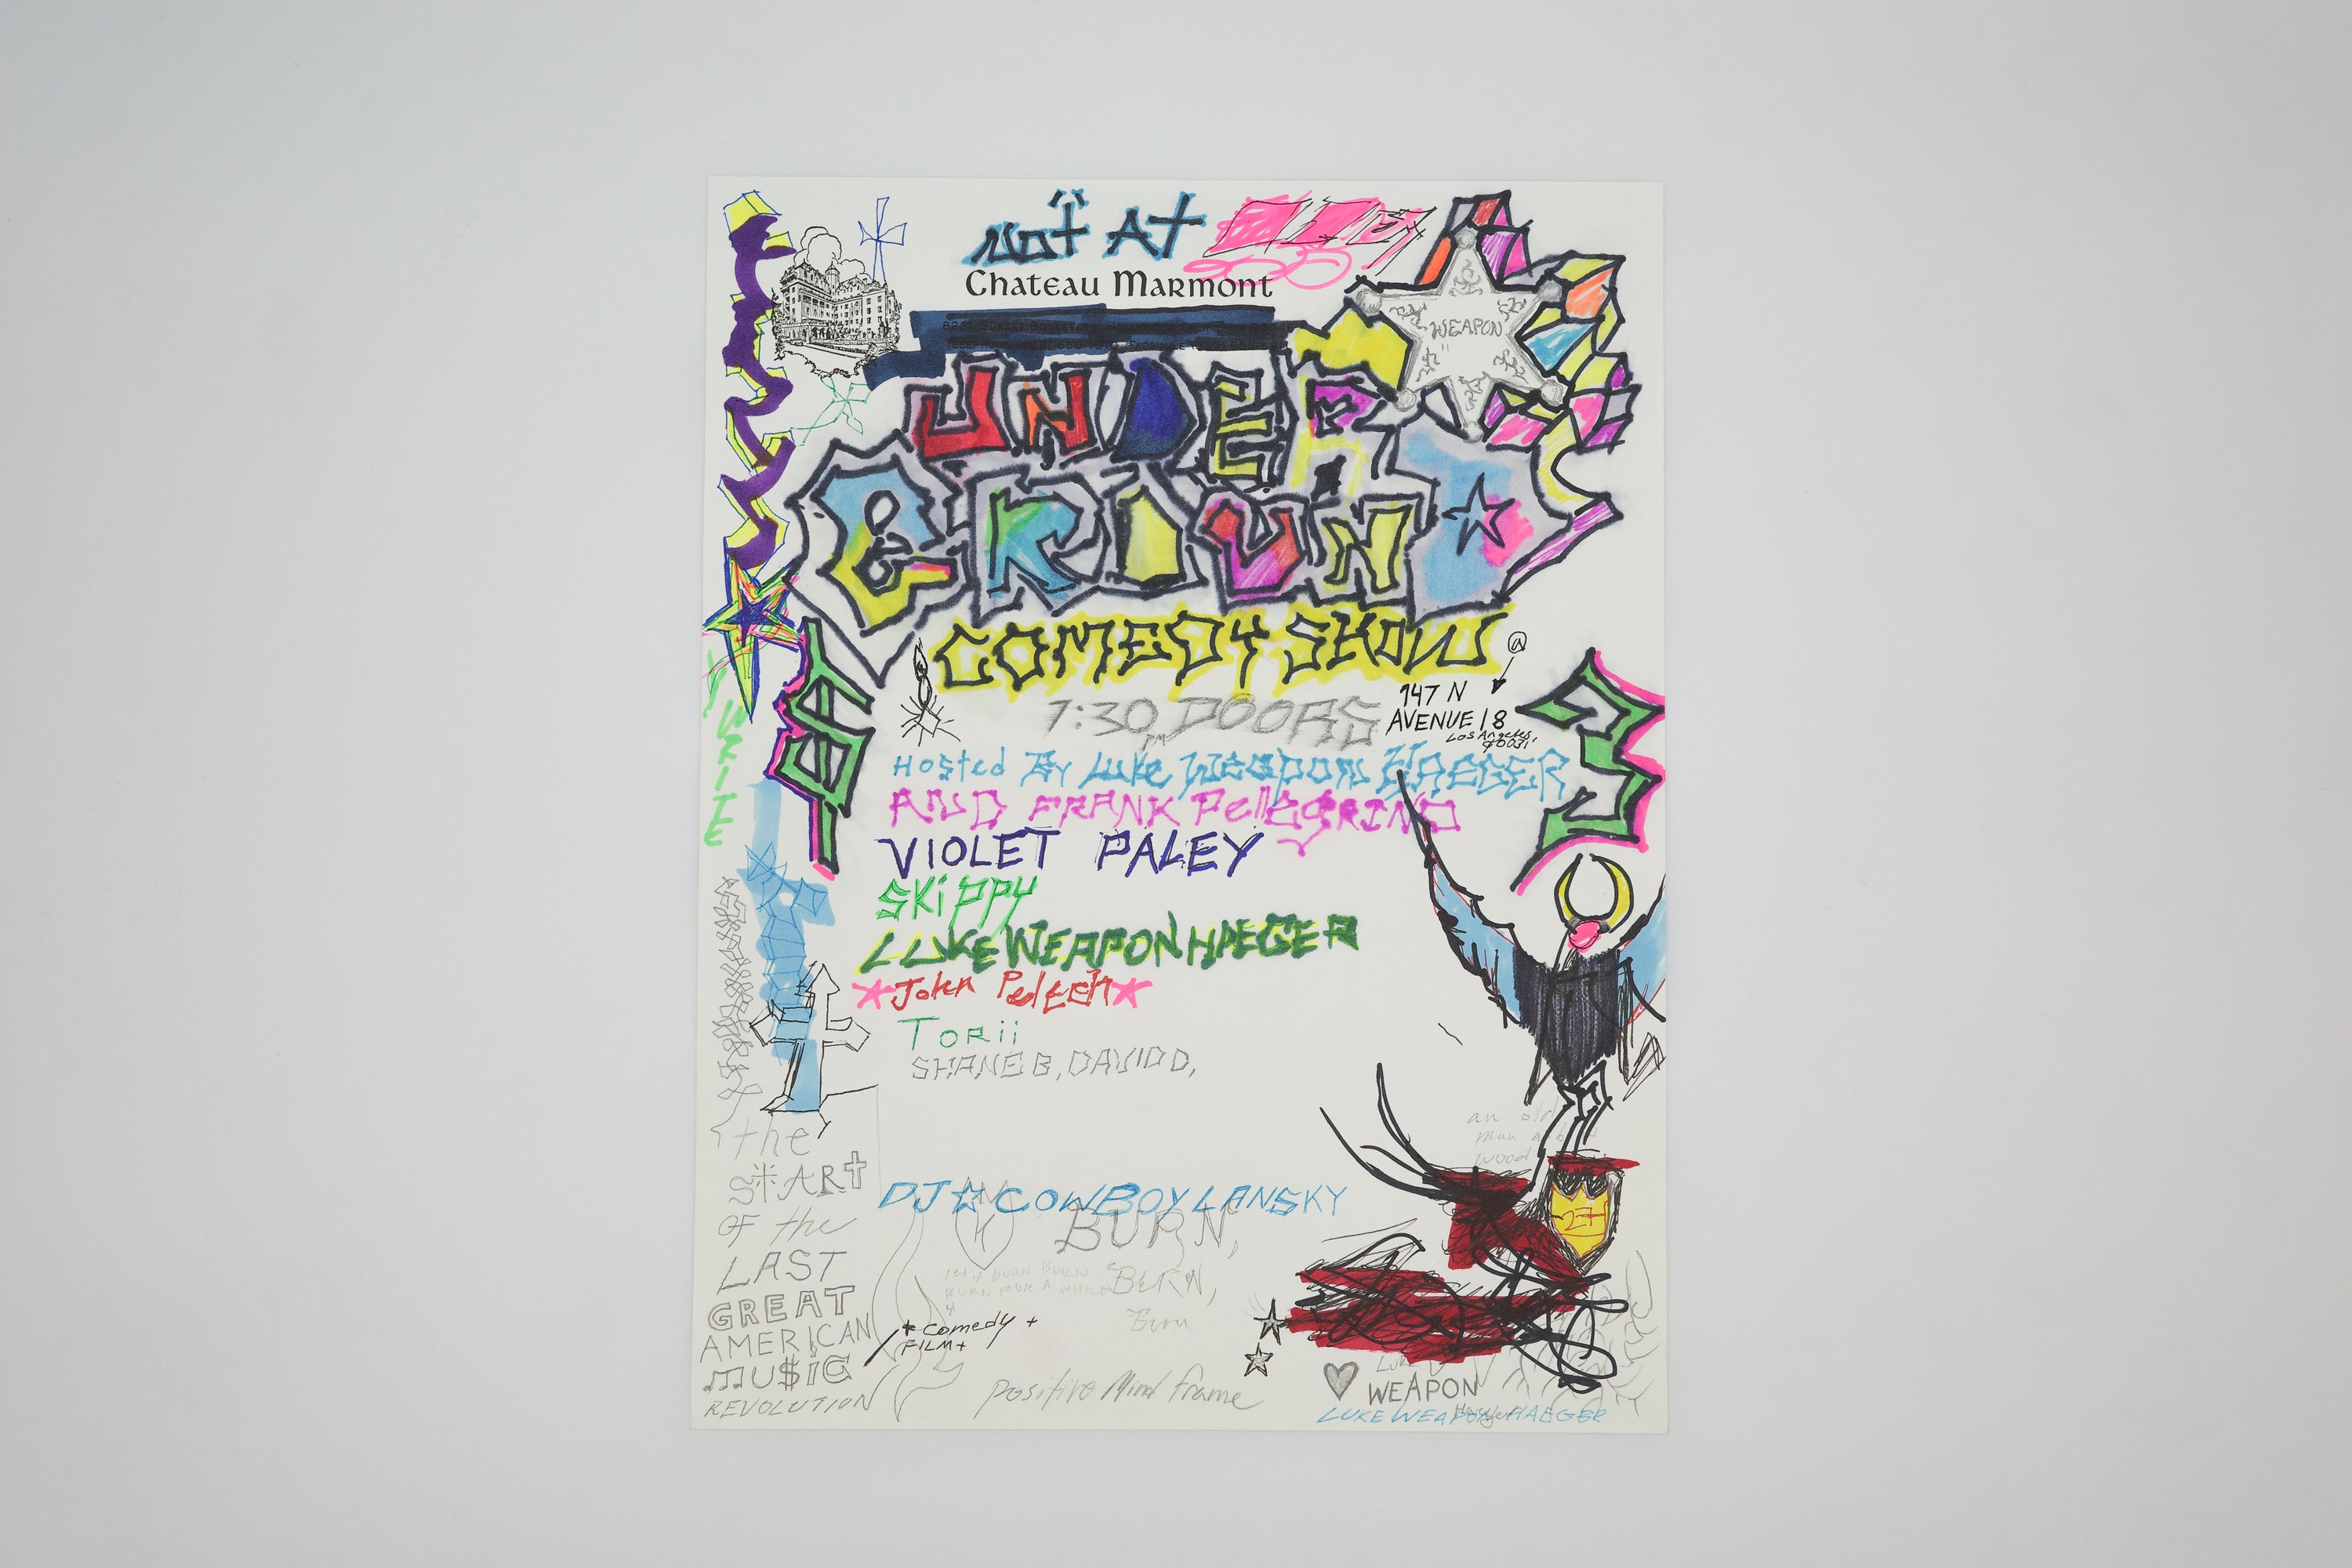 NOT AT
Chateau Marmont
WEAPON
UNDER
GROUND
COMEDY SHOW @
7:30 PM DOORS
147 N
AVENUE 18
Los Angeles,
90031
$
3
Hosted By Luke Weapon HAEGER
AND FRANK PellEGRINO
VIOLET PALEY
SKiPPY
LUKE WEAPON HAEGER
Torii
SHANE B, DAVID D,
the
START
OF the
LAST
GREAT
AMERICAN
MU$IC
REVOLUTION
an old
man
wood
27
DJ COWBOY LANSKY
BURN,
let it BURN BURN
BURN FOR A WHILE
BURN,
Burn
* Comedy +
FILM +
Positive Mind Frame
Luke
WEAPON
Haeger
LUKE WEAPON HAEGER